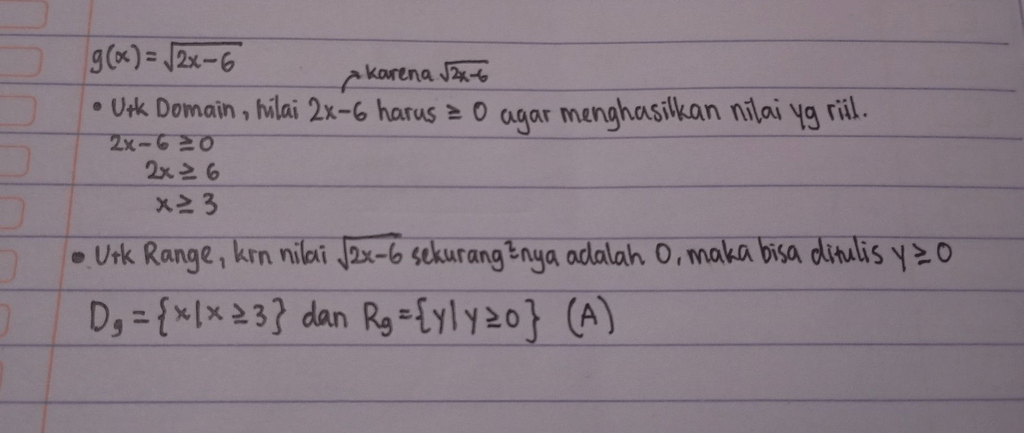 g(x) = √2x-6
karena √2x-6
• Utk Domain, nilai 2x-6 harus ≥ 0 agar menghasilkan nilai yg riil.
2x-6 ≥ 0
2x ≥ 6
x ≥ 3
• Utk Range, krn nilai √2x-6 sekurang²nya adalah 0, maka bisa ditulis y ≥ 0
Dg = {x|x ≥ 3} dan Rg = {y|y ≥ 0} (A)